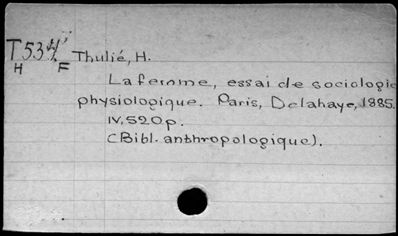 T53 Thulié, H.
H F
La femme, essai de sociologie
physiologique. Paris, Delahaye, 1885.
IV, 520p.
(Bibl. anthropologique).